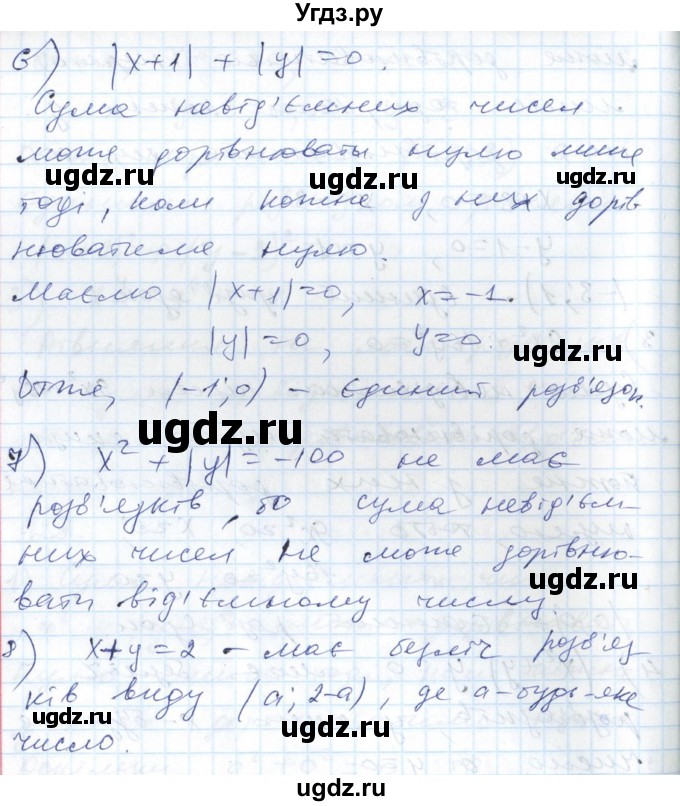 Угдз.ру
6) |x+1| + |y| = 0.
Сума невід'ємних чисел
може дорівнювати нулю лише
тоді, коли кожне з них дорів
нюватиме нулю.
Маємо |x+1|=0, x=-1.
|y|=0, y=0.
Отже, (-1; 0) - єдиний розв'язок.
7) x² + |y| = -100 не має
розв'язків, бо сума невід'єм-
них чисел не може дорівню-
вати від'ємному числу.
8) x+y=2 - має безліч розв'яз
ків виду (a; 2-a), де a - будь-яке
число.
ugdz.ru
ugdz.ru
ugdz.ru
ugdz.ru
ugdz.ru
ugdz.ru
ugdz.ru
ugdz.ru
ugdz.ru
ugdz.ru
ugdz.ru
ugdz.ru